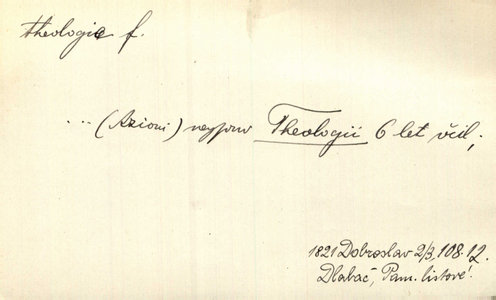 theologie f.
... (Azioni) neyprv Theologii 6 let učil;
1821 Dobroslav 2/3, 108.12.
Dlabač, Pam. listové!